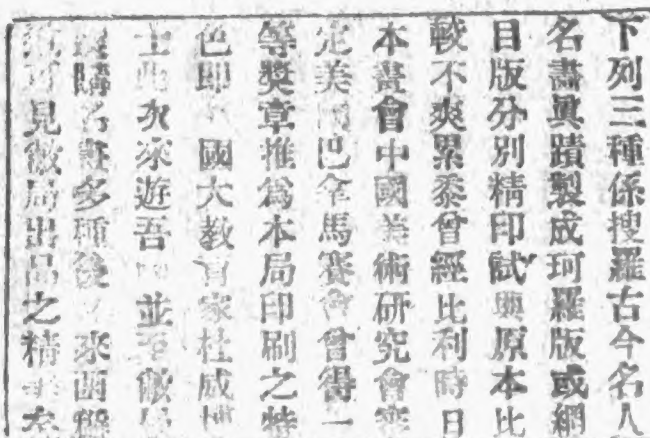 下列三種係搜羅古今名人
名畫眞蹟製成珂羅版或網
目版分別精印試與原本比
較不爽累黍曾經比利時日
本畫會中國美術研究會審
定美國巴拿馬賽會曾得一
等獎章推為本局印刷之特
色即 國大教育家杜威博
士此次來遊吾 並至敝局
購名畫多種後 來函稱
可見敝局出品之精